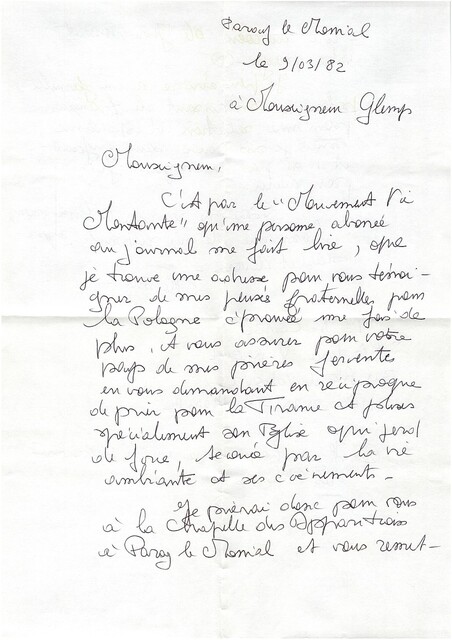 Paray le Monial
le 9/03/82
à Monseigneur Glemp
Monseigneur,
C'est par le "Mouvement
Montanite" qu'une personne abonée
au journal me fait lire, que
je trouve une adresse pour vous témoi-
gner de mes pensées fraternelles pour
la Pologne éprouvée une fois de
plus, et vous assurer pour votre
pays de mes prières ferventes
en vous demandant en réciproque
de prier pour la et plus
spécialement son Eglise qui perd
de, secouée par la vie
ambiante et ses événements -
Je prierai donc pour vous
à la Chapelle des Apparitions
à Paray le Monial et vous remet-